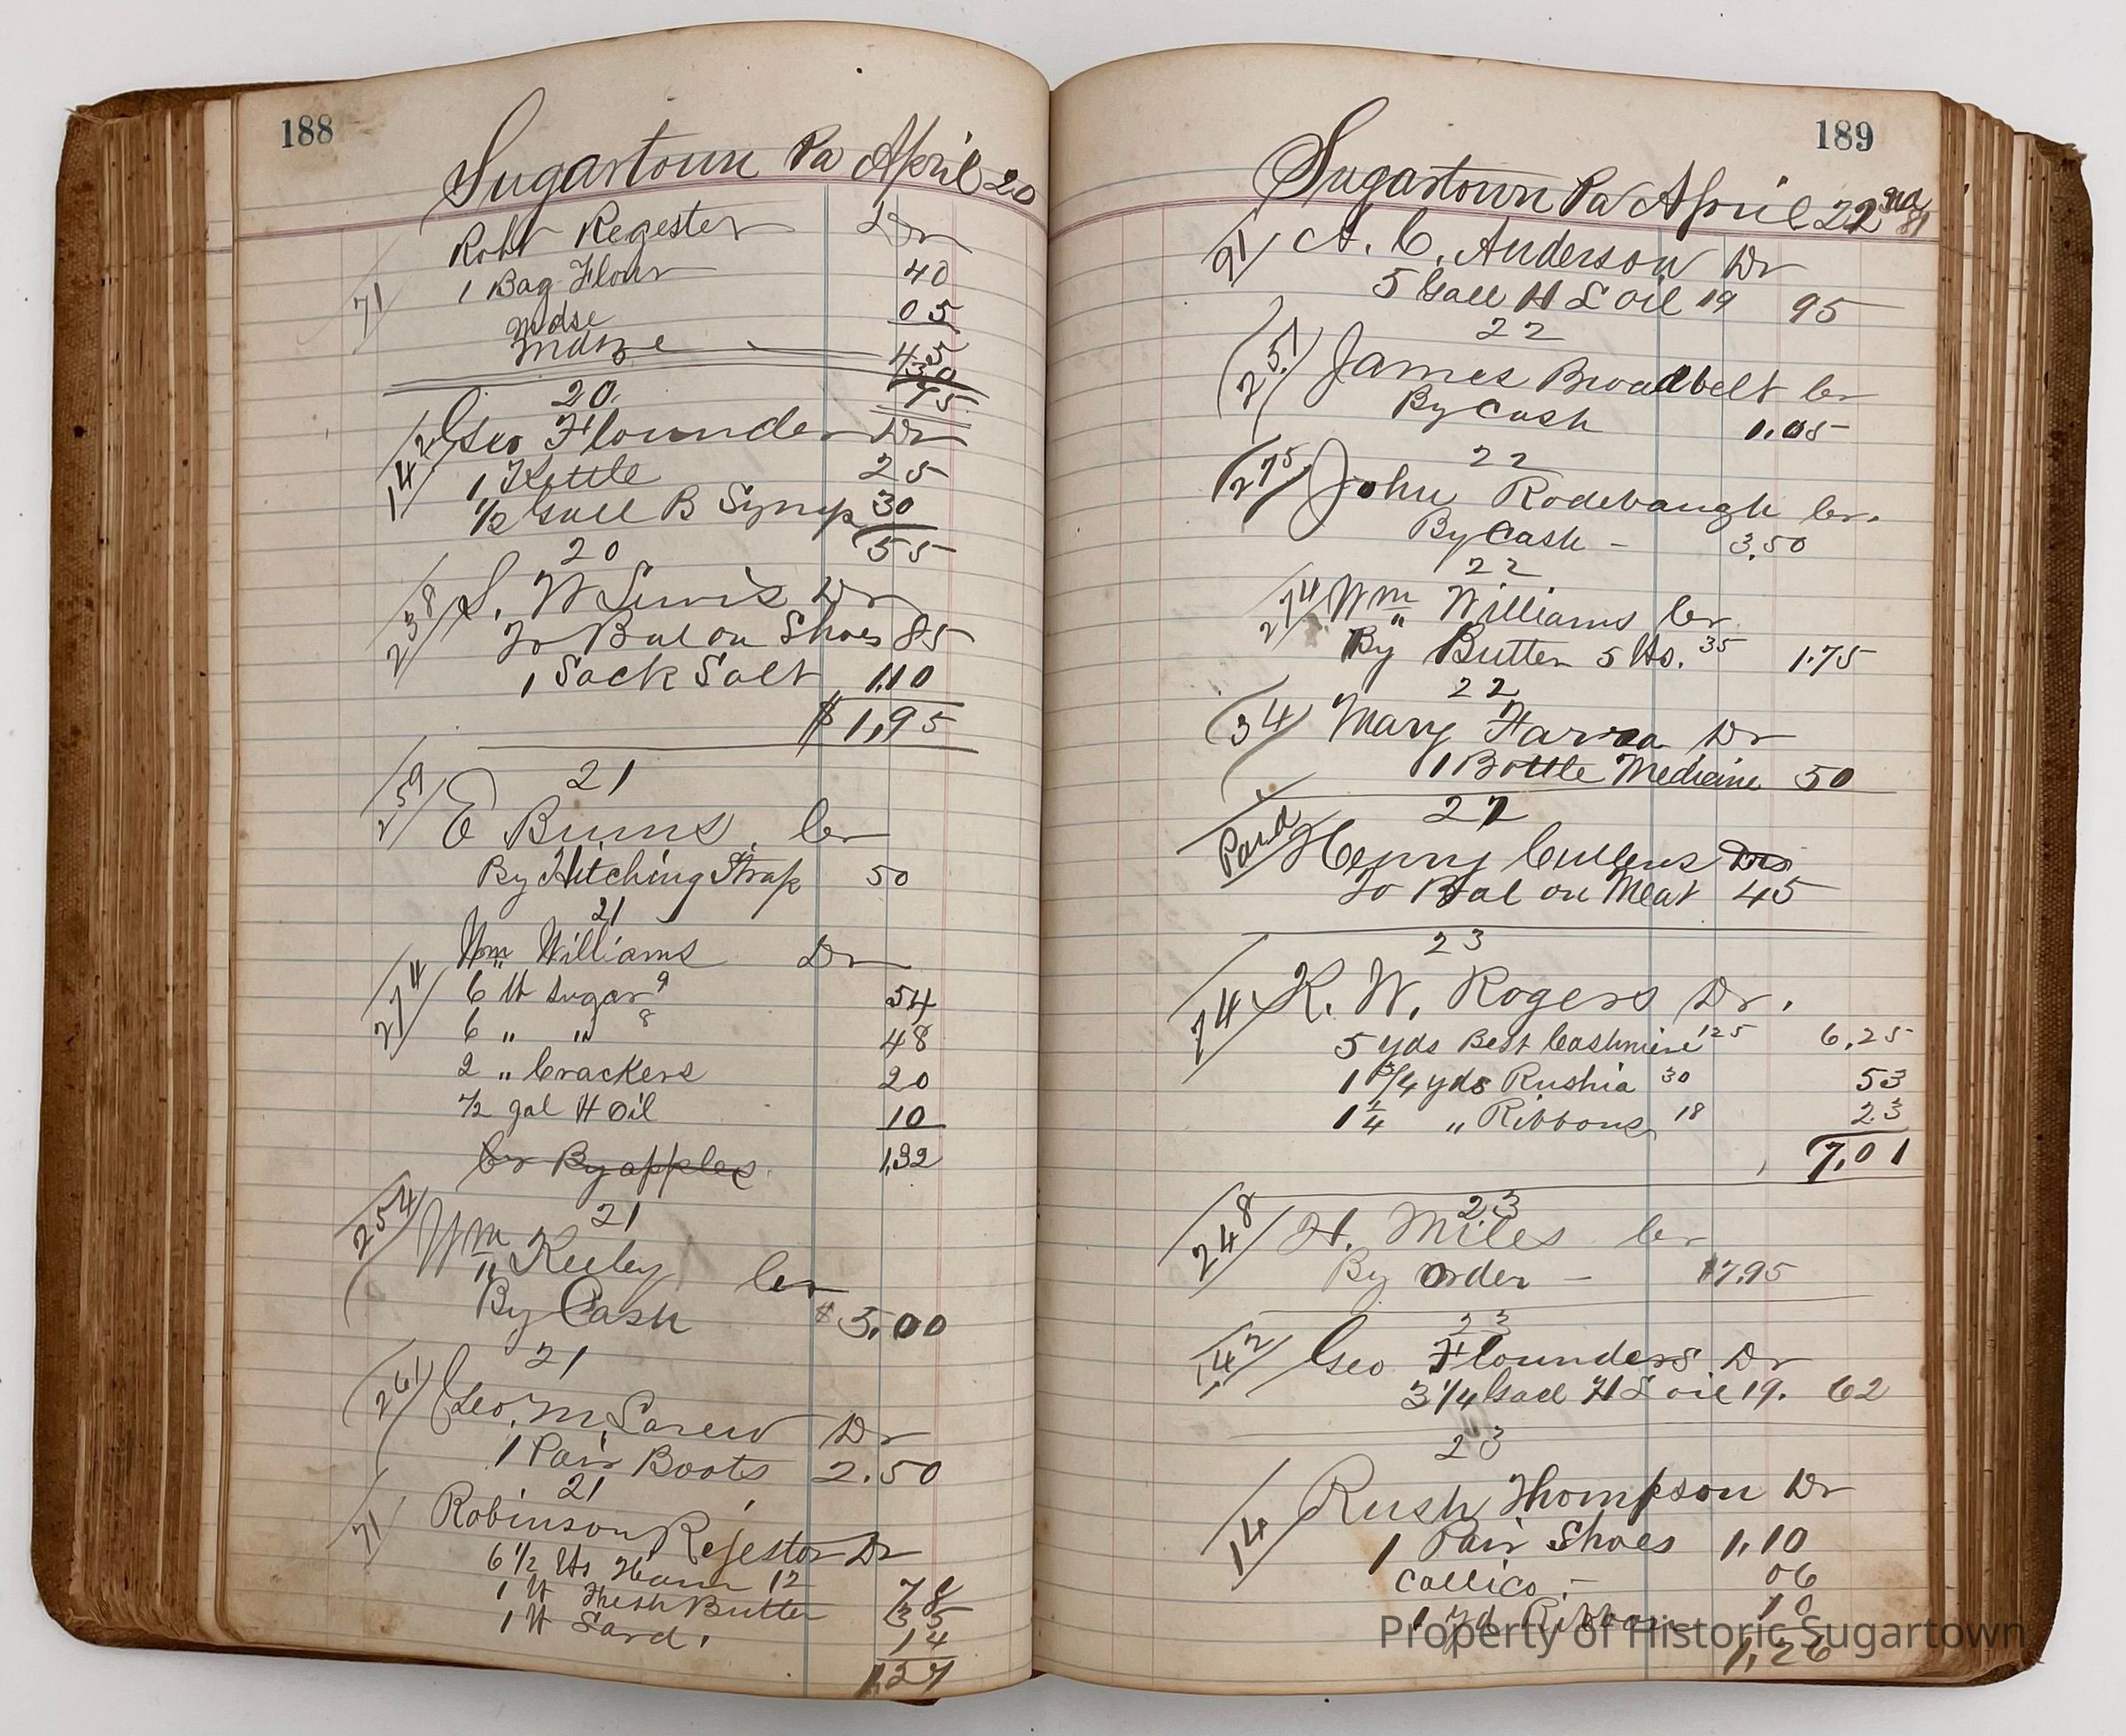 188
Sugartown Pa April 20
Robt Regester Dr
71
1 Bag Flour 40
Mdse 05
Mdse 45
30
75
20
142 Geo Flounders Dr
1 Kettle 25
1/2 Gall B Syrup 30
55
20
238 S. W Lewis Dr
To Bal on Shoes 85
1 Sack Salt 1.10
$1,95
21
259 E Burns Cr
By Hitching Strap 50
21
Wm Williams Dr
274 6 lb Sugar 9 54
6 " " 8 48
2 " Crackers 20
1/2 gal H Oil 10
Cr By apples 1,32
254 21
Wm Keeley Cr
By Cash $5.00
21
261 Geo. M. Dr
1 Pair Boots 2.50
21
71 Robinson Rejester Dr
6 1/2 lbs Ham 12 78
1 lb Fresh Butter 35
1 lb Lard. 14
1,27
189
Sugartown Pa April 22nd 81
91 A. C. Anderson Dr
5 Gall H L Oil 19 95
22
251 James Broadbelt Cr
By Cash 1.05
22
275 John Rodebaugh Cr.
By Cash - 3.50
22
274 Wm Williams Cr
By Butter 5 lbs. 35 1.75
22
34 Mary Dr
1 Bottle Medicine 50
22
Paid Henry Cullens Dr
To Bal on Meat 45
23
74 K. W. Rogers Dr.
5 yds Best Cashmire 125 6.25
1 3/4 yds Rushia 30 53
1 1/4 " Ribbons 18 23
7.01
248 23
H. Miles Cr
By Order - $7.95
23
142 Geo Flounders Dr
3 1/4 Gall H L oil 19. 62
23
14 Rush Thompson Dr
1 Pair Shoes 1.10
Callico - 06
1 yd Ribbon 10
1,26
Property of Historic Sugartown